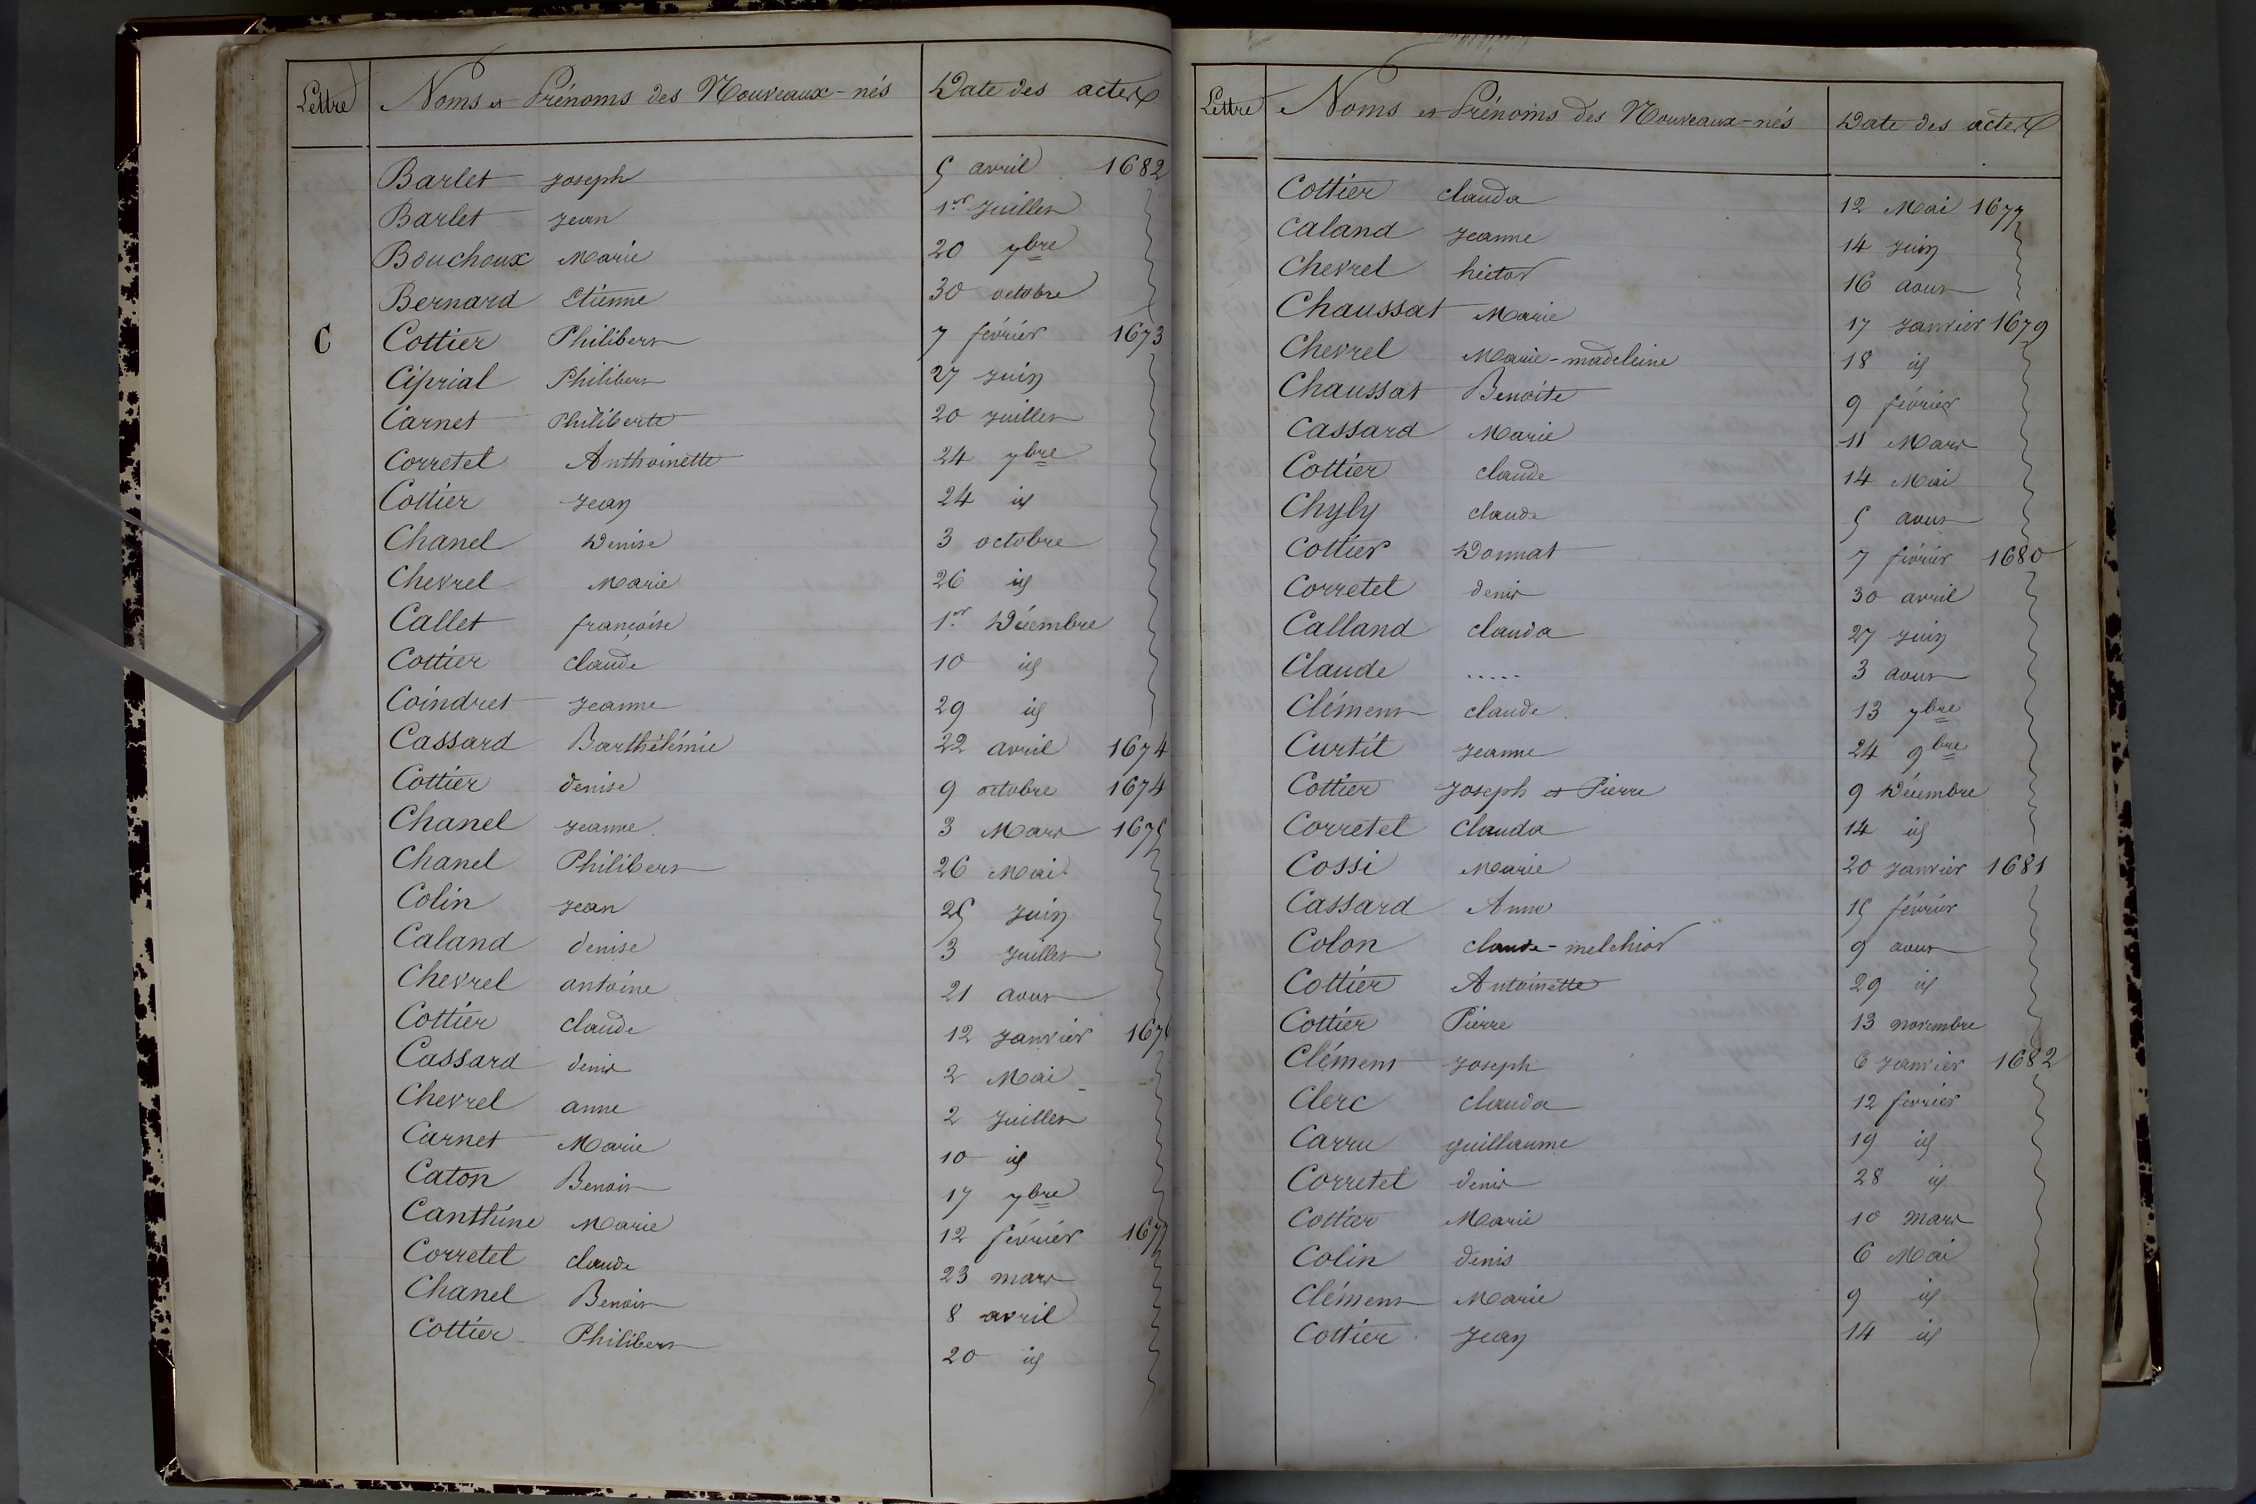 Lettre Noms et Prénoms des Nouveaux-nés Date des actes
Barlet Joseph 5 avril 1682
Barlet Jean 1er Juillet
Bouchoux Marie 20 7bre
Bernard Etienne 30 octobre
C Cottier Philibert 7 février 1673
Ciprial Philibert 27 Juin
Carnet Philiberte 20 Juillet
Corretel Anthoinette 24 7bre
Cottier Jean 24 id
Chanel Denise 3 octobre
Chevrel Marie 26 id
Callet françoise 1er Décembre
Cottier claude 10 id
Coindret Jeanne 29 id
Cassard Barthélémie 22 avril 1674
Cottier denise 9 octobre 1674
Chanel Jeanne 3 Mars 1675
Chanel Philibert 26 Mai
Colin Jean 25 Juin
Caland denise 3 Juillet
Chevrel antoine 21 aout
Cottier claude 12 Janvier 1676
Cassard denis 2 Mai
Chevrel anne 2 Juillet
Carnet Marie 10 id
Caton Benoit 17 7bre
Canttine Marie 12 février 1677
Corretel claude 23 mars
Chanel Benoit 8 avril
Cottier Philibert 20 id
Lettre Noms et Prénoms des Nouveaux-nés Date des actes
Cottier clauda 12 Mai 1677
Caland Jeanne 14 Juin
Chevrel hector 16 aout
Chaussat Marie 17 Janvier 1679
Chevrel Marie-madeleine 18 id
Chaussat Benoite 9 février
Cassard Marie 11 Mars
Cottier claude 14 Mai
Chyly claude 5 aout
Cottier Donnat 7 février 1680
Corretel denis 30 avril
Calland clauda 27 Juin
Claude ..... 3 aout
Clément claude 13 7bre
Curtit Jeanne 24 9bre
Cottier Joseph et Pierre 9 Décembre
Corretel Clauda 14 id
Cossi Marie 20 Janvier 1681
Cassard Anne 15 février
Colon claude-melchior 9 aout
Cottier Antoinette 29 id
Cottier Pierre 13 novembre
Clément Joseph 6 Janvier 1682
Clerc Clauda 12 février
Carru guillaume 19 id
Corretel denis 28 id
Cottier Marie 10 mars
Colin denis 6 Mai
Clément Marie 9 id
Cottier Jean 14 id